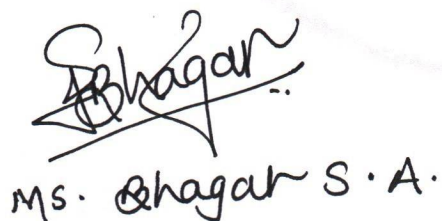 SABhagat
Ms. Bhagat S. A.